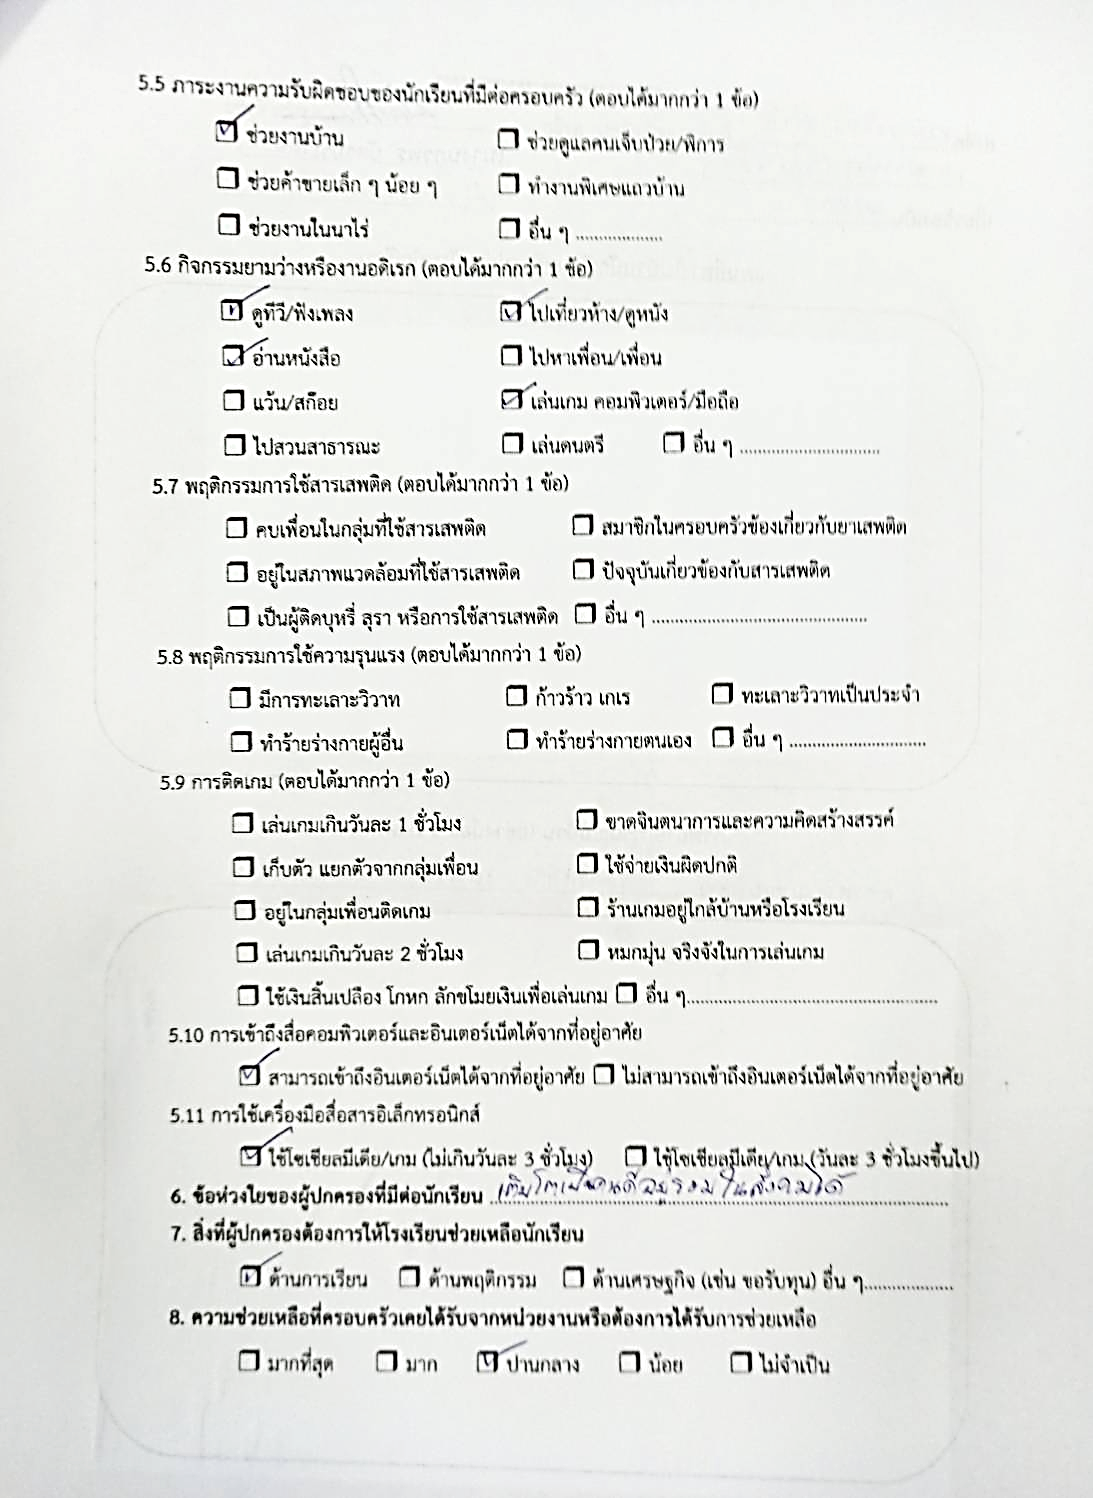 5.5 ภาระงานความรับผิดชอบของนักเรียนที่มีต่อครอบครัว (ตอบได้มากกว่า 1 ข้อ)
☑ ช่วยงานบ้าน ☐ ช่วยดูแลคนเจ็บป่วย/พิการ
☐ ช่วยค้าขายเล็ก ๆ น้อย ๆ ☐ ทำงานพิเศษแถวบ้าน
☐ ช่วยงานในนาไร่ ☐ อื่น ๆ ...................
5.6 กิจกรรมยามว่างหรืองานอดิเรก (ตอบได้มากกว่า 1 ข้อ)
☑ ดูทีวี/ฟังเพลง ☑ ไปเที่ยวห้าง/ดูหนัง
☑ อ่านหนังสือ ☐ ไปหาเพื่อน/เพื่อน
☐ แว้น/สก๊อย ☑ เล่นเกม คอมพิวเตอร์/มือถือ
☐ ไปสวนสาธารณะ ☐ เล่นดนตรี ☐ อื่น ๆ ...............................
5.7 พฤติกรรมการใช้สารเสพติด (ตอบได้มากกว่า 1 ข้อ)
☐ คบเพื่อนในกลุ่มที่ใช้สารเสพติด ☐ สมาชิกในครอบครัวข้องเกี่ยวกับยาเสพติด
☐ อยู่ในสภาพแวดล้อมที่ใช้สารเสพติด ☐ ปัจจุบันเกี่ยวข้องกับสารเสพติด
☐ เป็นผู้ติดบุหรี่ สุรา หรือการใช้สารเสพติด ☐ อื่น ๆ ...............................................
5.8 พฤติกรรมการใช้ความรุนแรง (ตอบได้มากกว่า 1 ข้อ)
☐ มีการทะเลาะวิวาท ☐ ก้าวร้าว เกเร ☐ ทะเลาะวิวาทเป็นประจำ
☐ ทำร้ายร่างกายผู้อื่น ☐ ทำร้ายร่างกายตนเอง ☐ อื่น ๆ ..............................
5.9 การติดเกม (ตอบได้มากกว่า 1 ข้อ)
☐ เล่นเกมเกินวันละ 1 ชั่วโมง ☐ ขาดจินตนาการและความคิดสร้างสรรค์
☐ เก็บตัว แยกตัวจากกลุ่มเพื่อน ☐ ใช้จ่ายเงินผิดปกติ
☐ อยู่ในกลุ่มเพื่อนติดเกม ☐ ร้านเกมอยู่ใกล้บ้านหรือโรงเรียน
☐ เล่นเกมเกินวันละ 2 ชั่วโมง ☐ หมกมุ่น จริงจังในการเล่นเกม
☐ ใช้เงินสิ้นเปลือง โกหก ลักขโมยเงินเพื่อเล่นเกม ☐ อื่น ๆ.......................................................
5.10 การเข้าถึงสื่อคอมพิวเตอร์และอินเตอร์เน็ตได้จากที่อยู่อาศัย
☑ สามารถเข้าถึงอินเตอร์เน็ตได้จากที่อยู่อาศัย ☐ ไม่สามารถเข้าถึงอินเตอร์เน็ตได้จากที่อยู่อาศัย
5.11 การใช้เครื่องมือสื่อสารอิเล็กทรอนิกส์
☑ ใช้โซเชียลมีเดีย/เกม (ไม่เกินวันละ 3 ชั่วโมง) ☐ ใช้โซเชียลมีเดีย/เกม (วันละ 3 ชั่วโมงขึ้นไป)
6. ข้อห่วงใยของผู้ปกครองที่มีต่อนักเรียน เติบโตเป็นคนดี อยู่รวมในสังคมได้
7. สิ่งที่ผู้ปกครองต้องการให้โรงเรียนช่วยเหลือนักเรียน
☑ ด้านการเรียน ☐ ด้านพฤติกรรม ☐ ด้านเศรษฐกิจ (เช่น ขอรับทุน) อื่น ๆ...................
8. ความช่วยเหลือที่ครอบครัวเคยได้รับจากหน่วยงานหรือต้องการได้รับการช่วยเหลือ
☐ มากที่สุด ☐ มาก ☑ ปานกลาง ☐ น้อย ☐ ไม่จำเป็น